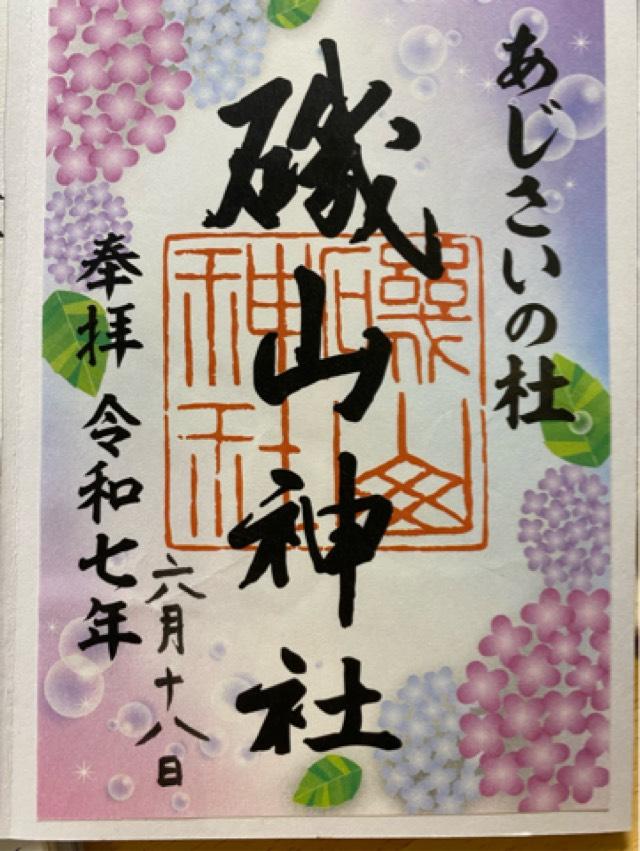 あじさいの杜
磯山神社
磯山
神社
奉拝 令和七年
六月十八日